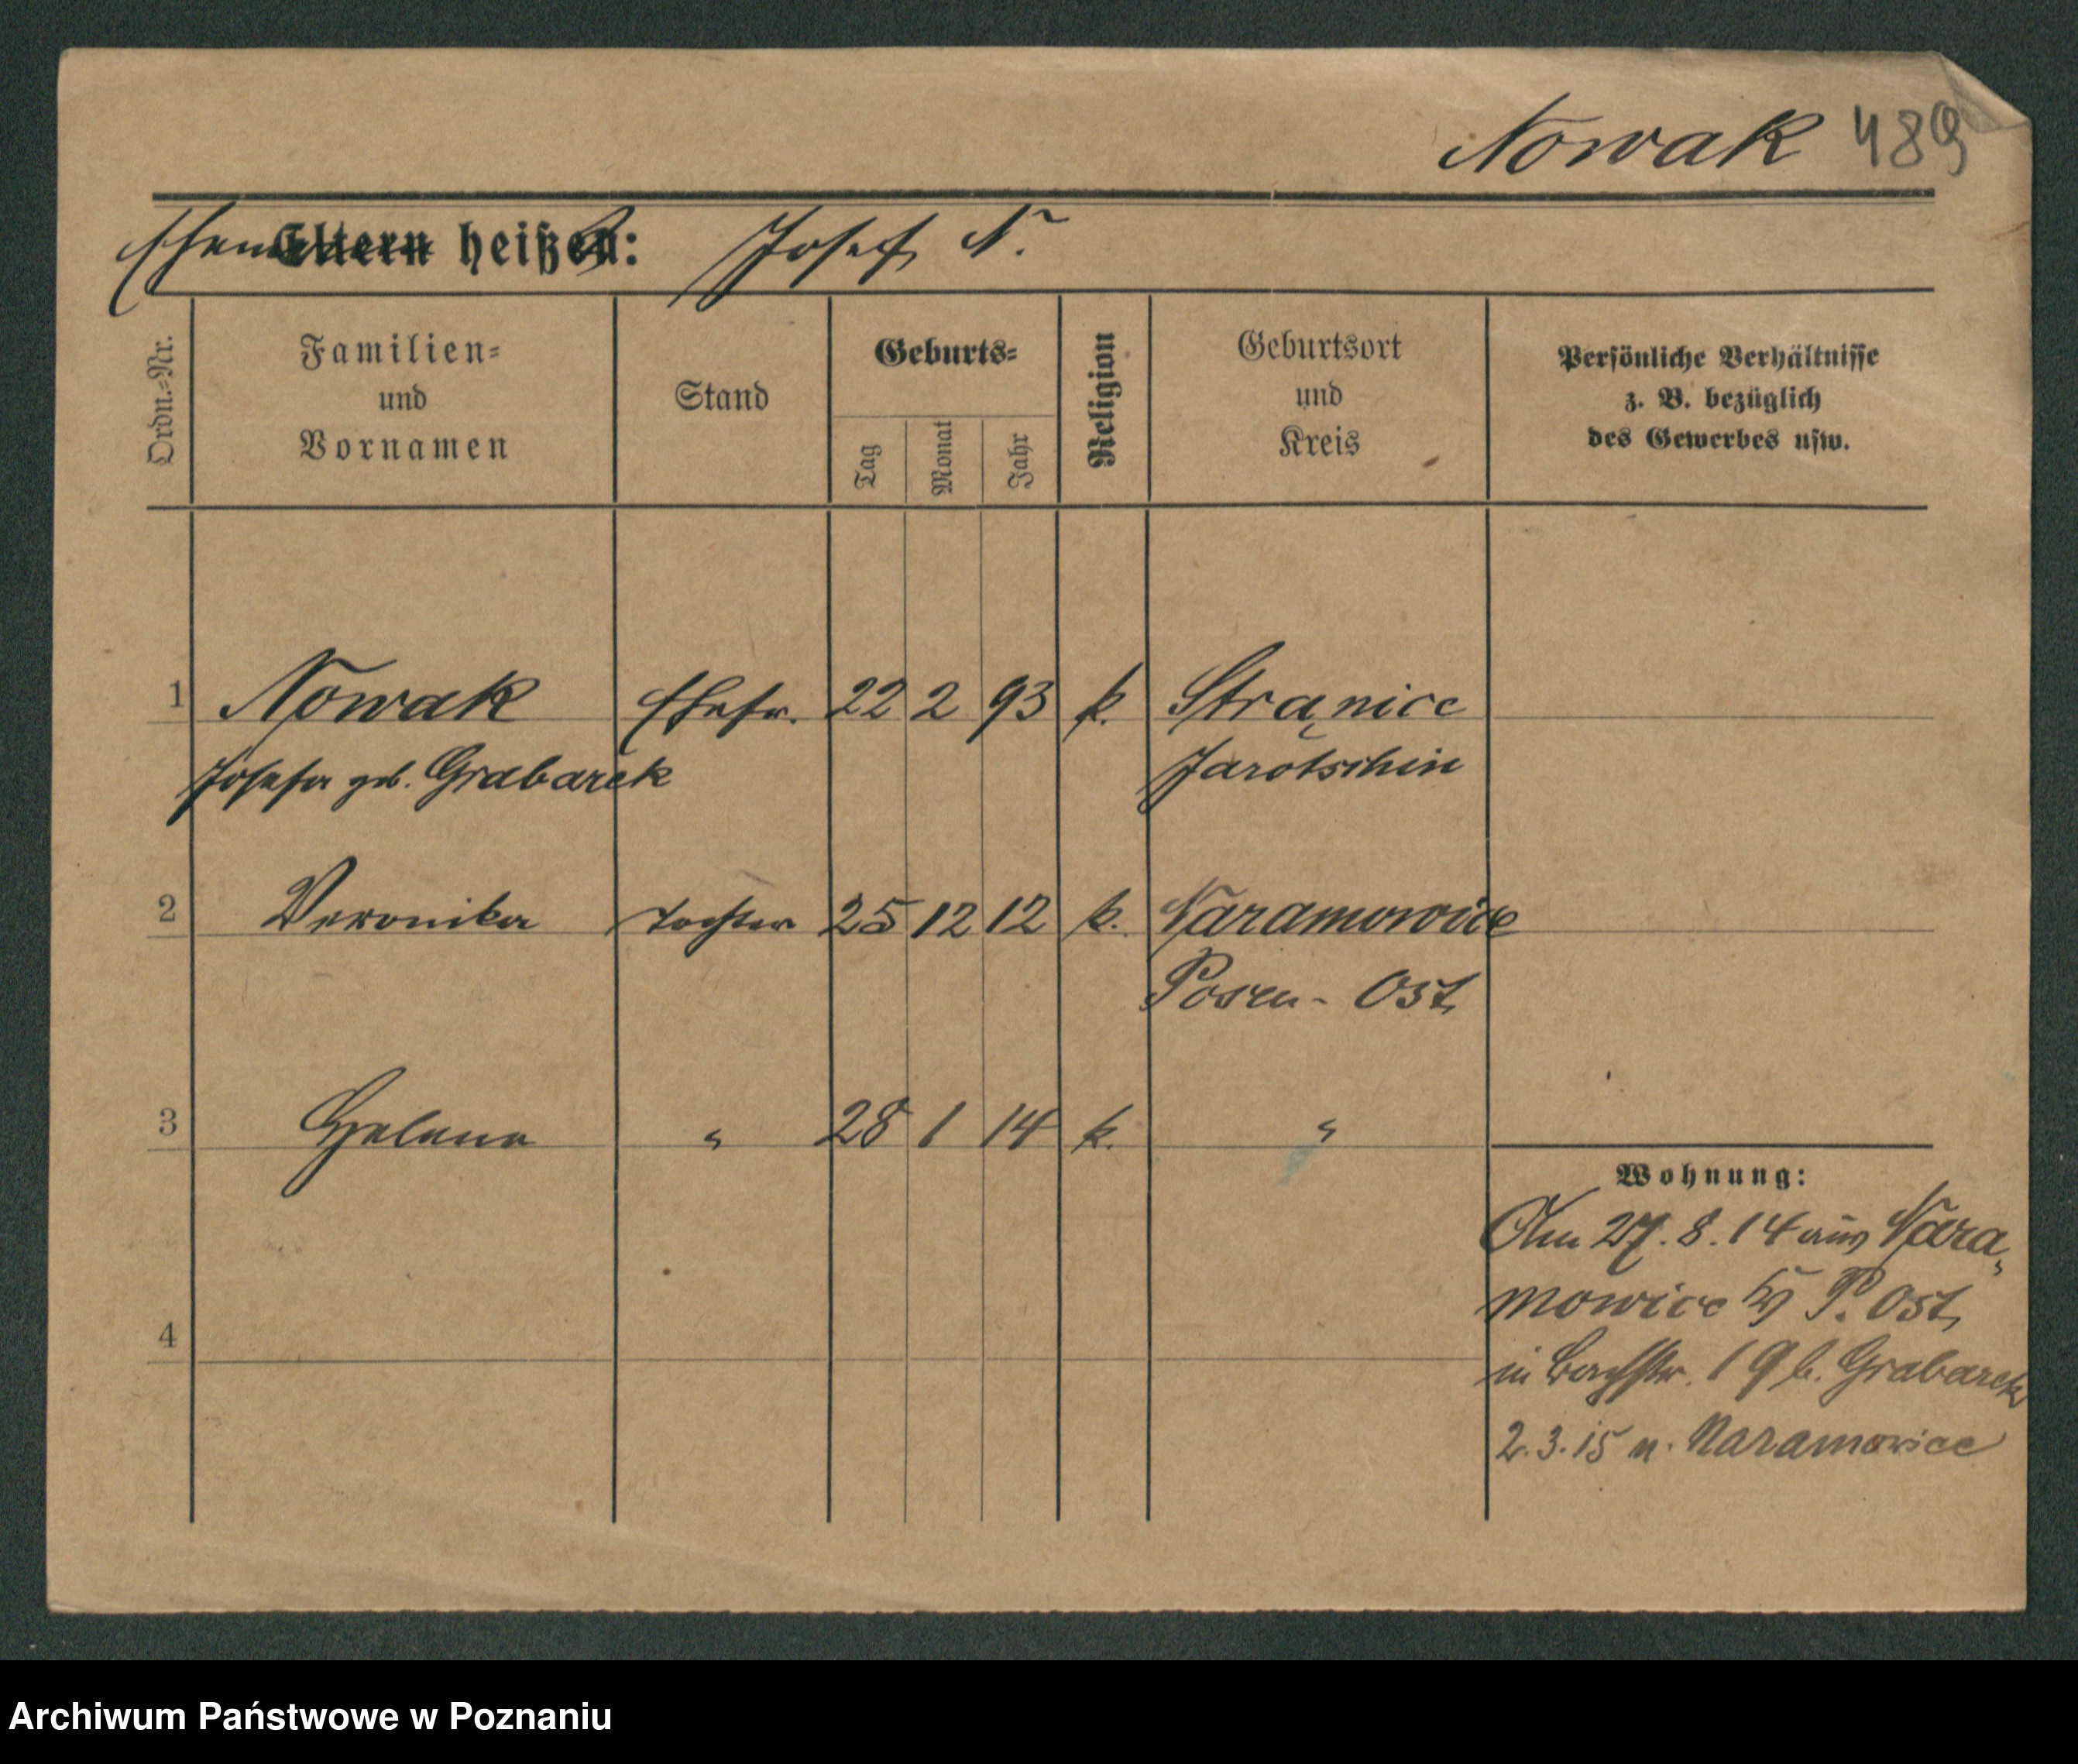 Nowak 489
Ehem Eltern heißen: Josef N.
Ordn.-Nr.
Familien-
und
Vornamen
Stand
Geburts-
Tag
Monat
Jahr
Religion
Geburtsort
und
Kreis
Persönliche Verhältnisse
z. B. bezüglich
des Gewerbes usw.
1 Nowak Ehefr. 22 2 93 k. Strąnice
Josefa geb. Grabarek Jarotschin
2 Veronika Tochter 25 12 12 k. Naramowice
Posen - Ost
3 Helena " 28 1 14 k. "
Wohnung:
Am 27. 8. 14 aus Nara
mowice P. Ost,
in Bachstr. 19 b. Grabarek
4
2. 3. 15 n. Naramowice
Archiwum Państwowe w Poznaniu